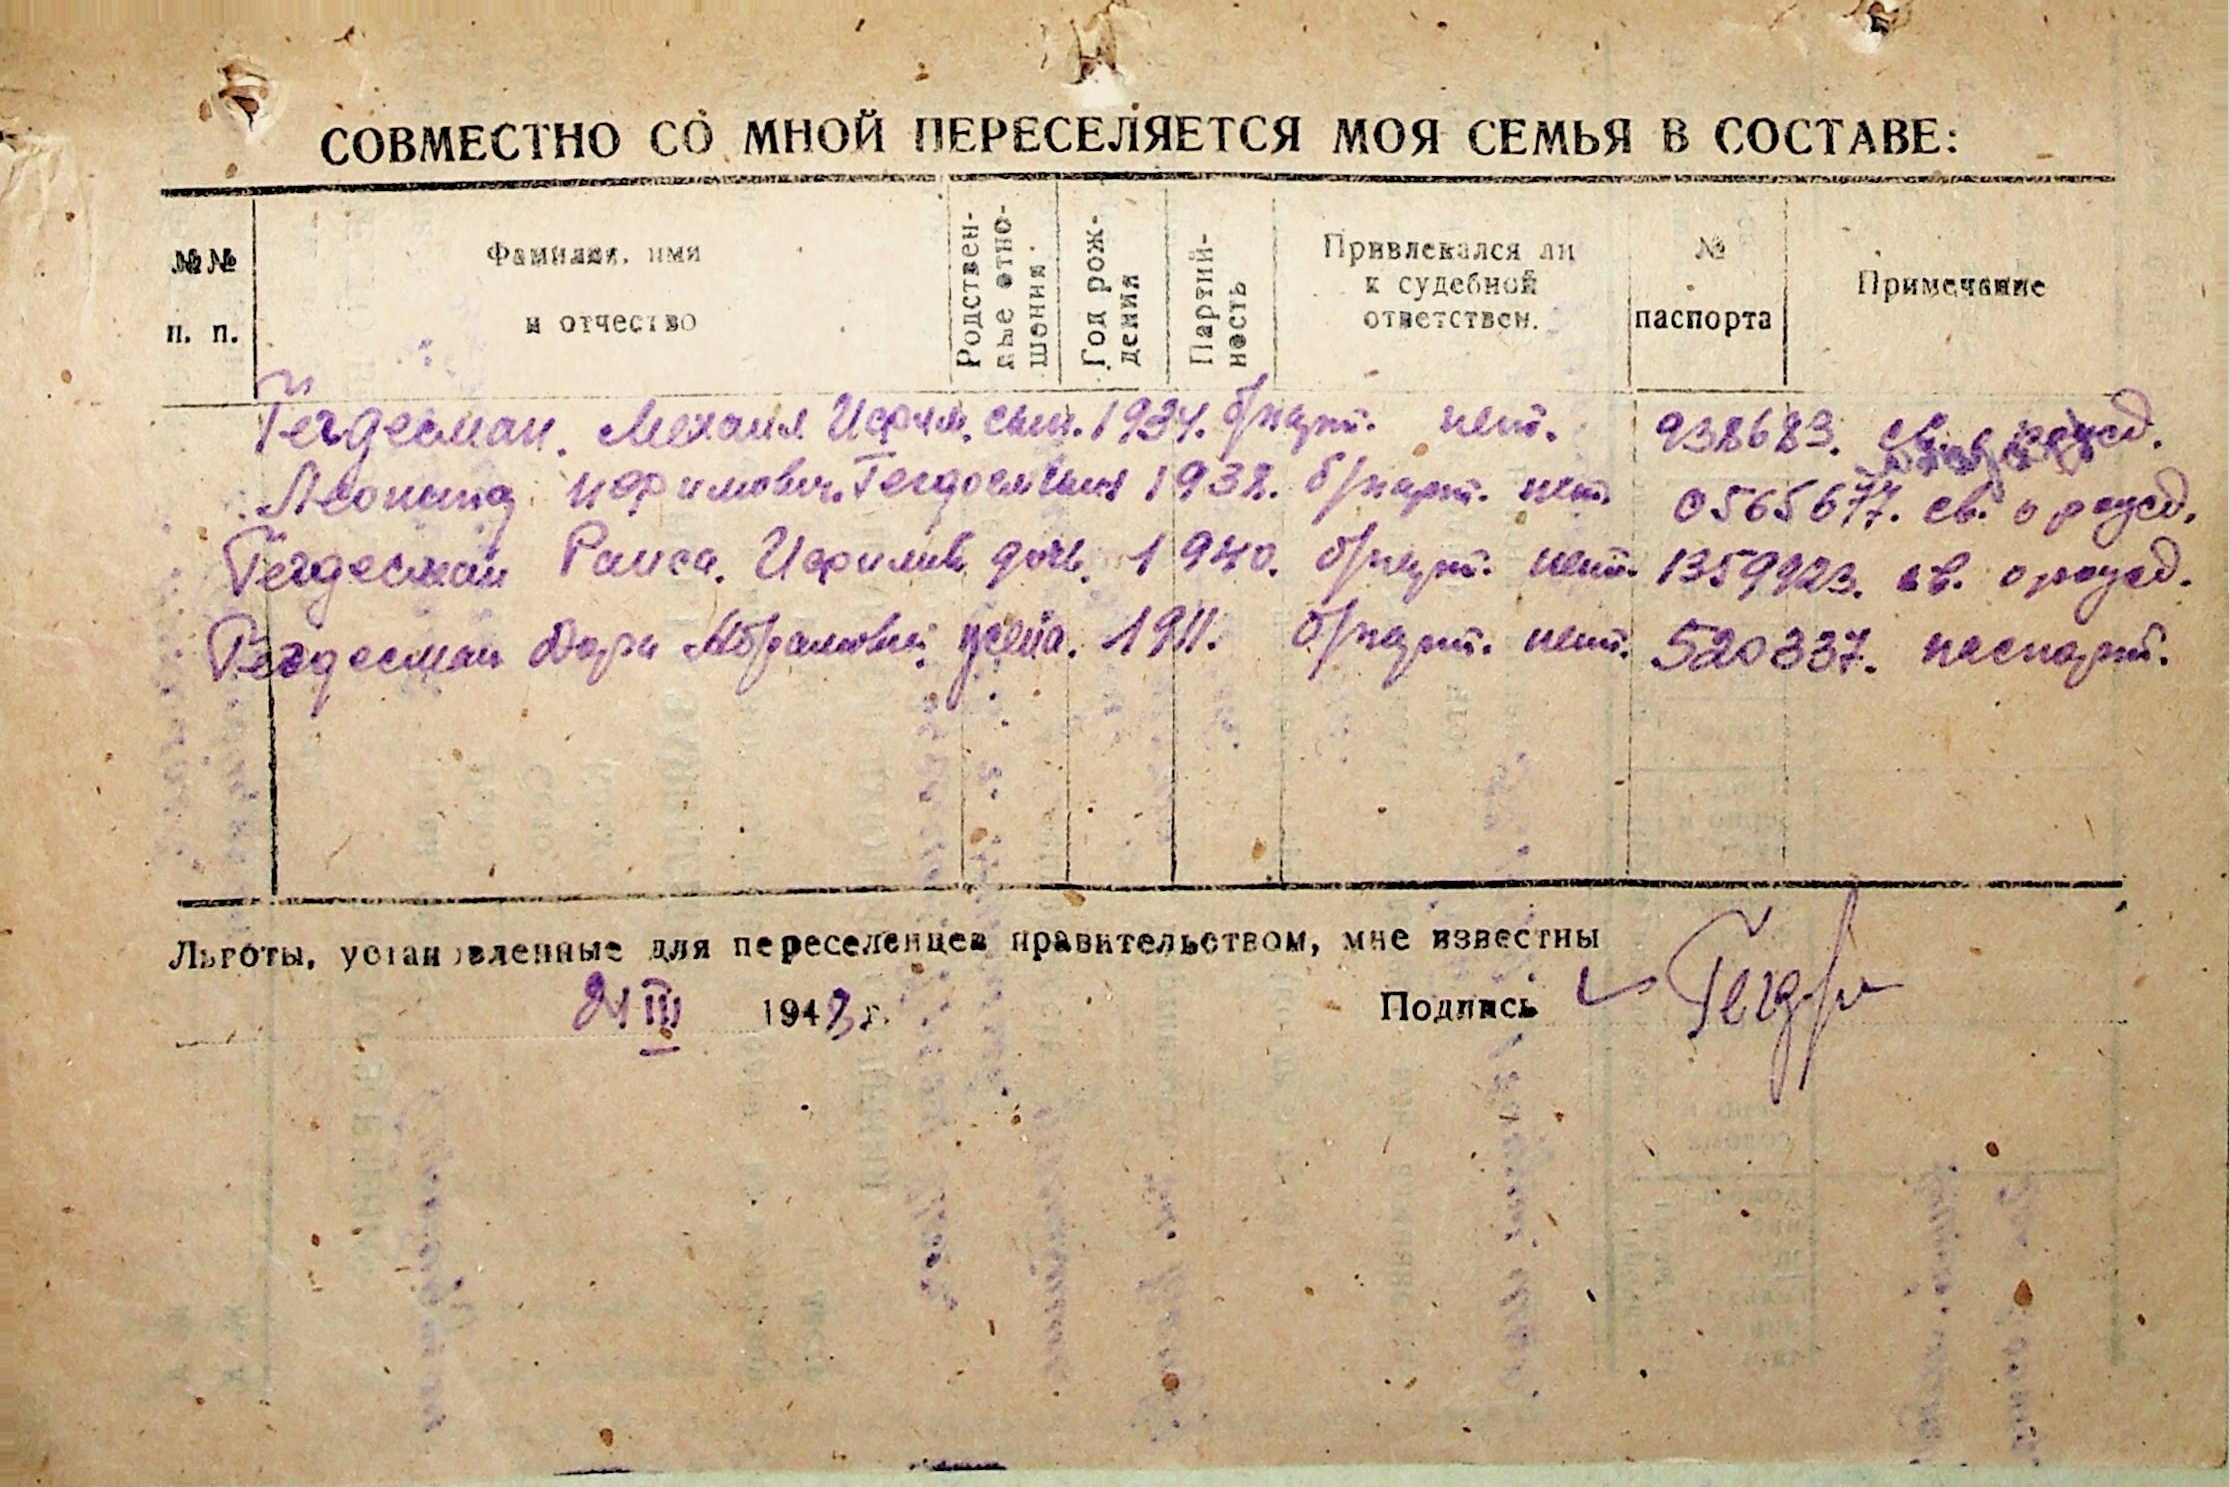 СОВМЕСТНО СО МНОЙ ПЕРЕСЕЛЯЕТСЯ МОЯ СЕМЬЯ В СОСТАВЕ:
№№ п. п.
Фамилия, имя и отчество
Родственные отношения
Год рождения
Партийность
Привлекался ли к судебной ответствен.
№ паспорта
Примечание
Гегдесман. Михаил Исрум. сын. 1934. б/парт. нет. 938683. св.
Леонид Исрулович. Гегдесман 1932. б/парт. нет. 0565677. св. о рожд.
Гегдесман Раиса. дочь. 1940. б/парт. нет. 1359923. св. о рожд.
Гегдесман Дора Абрамовн. жена. 1911. б/парт. нет. 520337. паспорт.
Льготы, установленные для переселенцев правительством, мне известны
21 III 1948 г.
Подпись